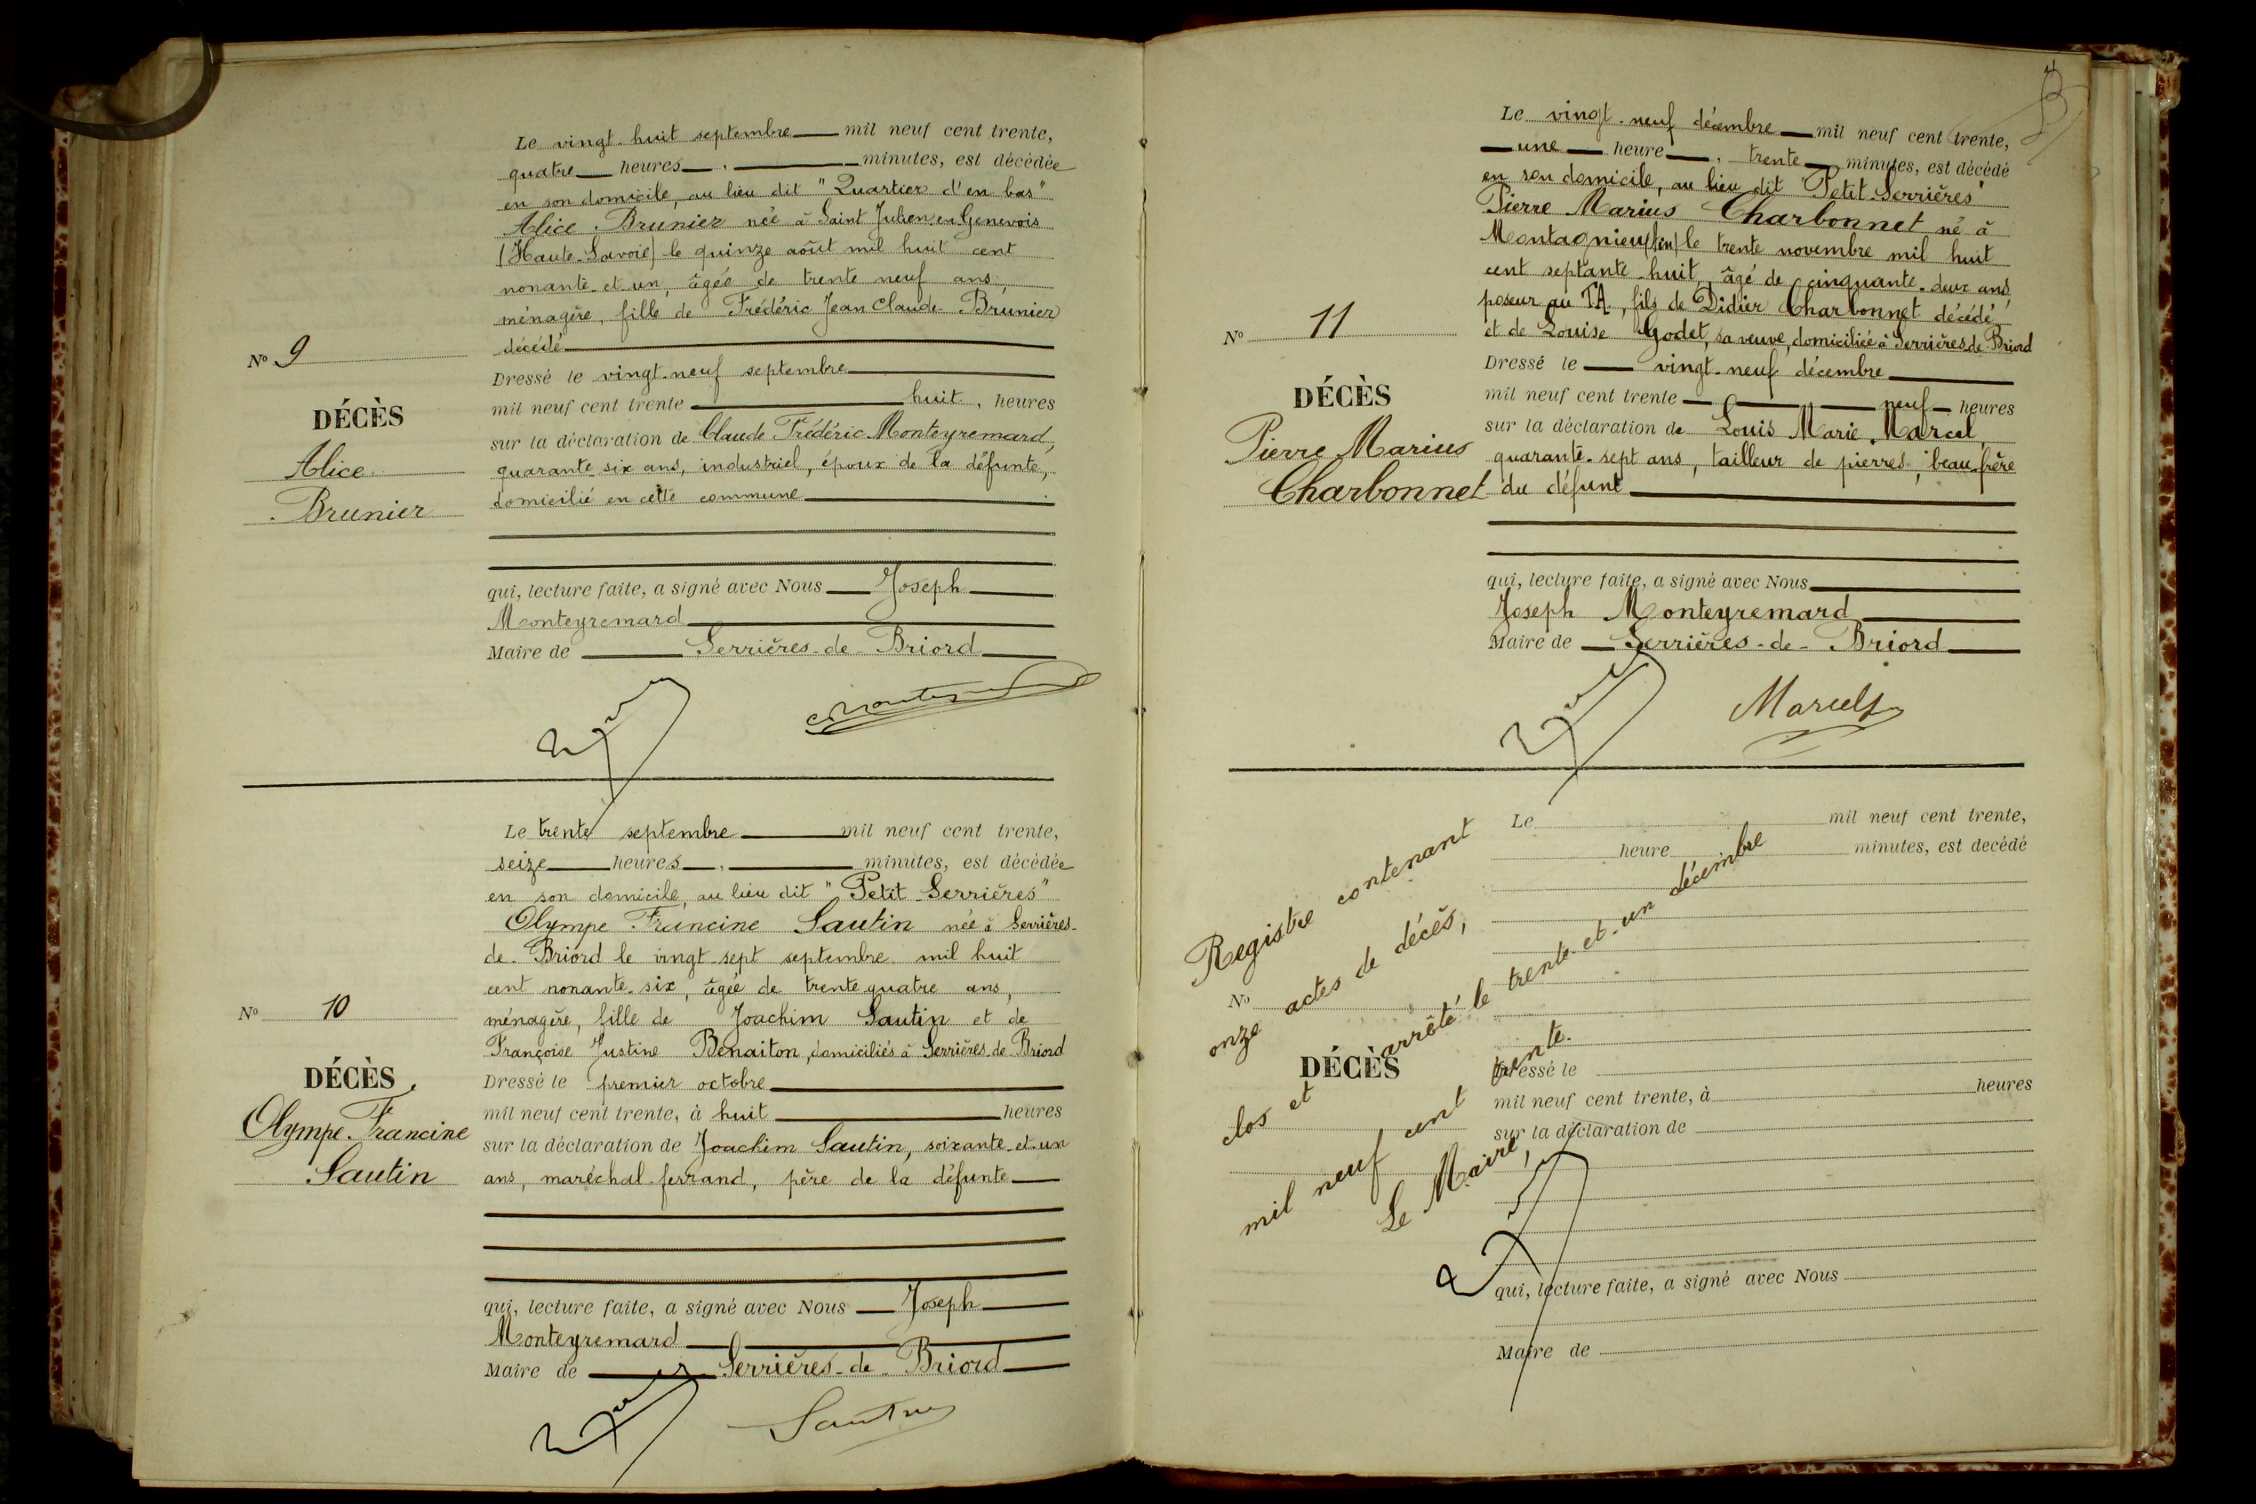 Le vingt-huit septembre mil neuf cent trente,
quatre heures, minutes, est décédée
en son domicile, au lieu dit "Quartier d'en bas"
Alice Brunier née à Saint Julien en Genevois
(Haute-Savoie) le quinze août mil huit cent
nonante-et-un, âgée de trente neuf ans,
ménagère, fille de Frédéric Jean Claude Brunier
décédé
N° 9
DÉCÈS
Alice
Brunier
Dressé le vingt-neuf septembre
mil neuf cent trente huit, heures
sur la déclaration de Claude Frédéric Monteyremard,
quarante six ans, industriel, époux de la défunte,
domicilié en cette commune
qui, lecture faite, a signé avec Nous Joseph
Monteyremard
Maire de Serrières-de-Briord
Le trente septembre mil neuf cent trente,
seize heures, minutes, est décédée
en son domicile, au lieu dit "Petit-Serrières"
Olympe Francine Sautin née à Serrières-
de-Briord le vingt-sept septembre mil huit
cent nonante-six, âgée de trente quatre ans,
ménagère, fille de Joachim Sautin et de
Françoise Justine Benaiton, domiciliés à Serrières-de-Briord
N° 10
DÉCÈS
Olympe Francine
Sautin
Dressé le premier octobre
mil neuf cent trente, à huit heures
sur la déclaration de Joachim Sautin, soixante-et-un
ans, maréchal-ferrand, père de la défunte
qui, lecture faite, a signé avec Nous Joseph
Monteyremard
Maire de Serrières-de-Briord
Sautin
Le vingt-neuf décembre mil neuf cent trente,
une heure, trente minutes, est décédé
en son domicile, au lieu dit "Petit-Serrières"
Pierre Marius Charbonnet né à
Montagnieu (Ain) le trente novembre mil huit
cent septante-huit, âgé de cinquante-deux ans,
poseur au T.A., fils de Didier Charbonnet décédé
et de Louise Godet, sa veuve, domiciliée à Serrières-de-Briord
N° 11
DÉCÈS
Pierre Marius
Charbonnet
Dressé le vingt-neuf décembre
mil neuf cent trente neuf heures
sur la déclaration de Louis Marie Marcel,
quarante-sept ans, tailleur de pierres, beau-frère
du défunt
qui, lecture faite, a signé avec Nous
Joseph Monteyremard
Maire de Serrières-de-Briord
Marcel
Le mil neuf cent trente,
heure minutes, est decédé
N°
DÉCÈS
Dressé le
mil neuf cent trente, à heures
sur la déclaration de
qui, lecture faite, a signé avec Nous
Maire de
Registre contenant
onze actes de décès,
clos et arrêté le trente-et-un décembre
mil neuf cent trente.
Le Maire,